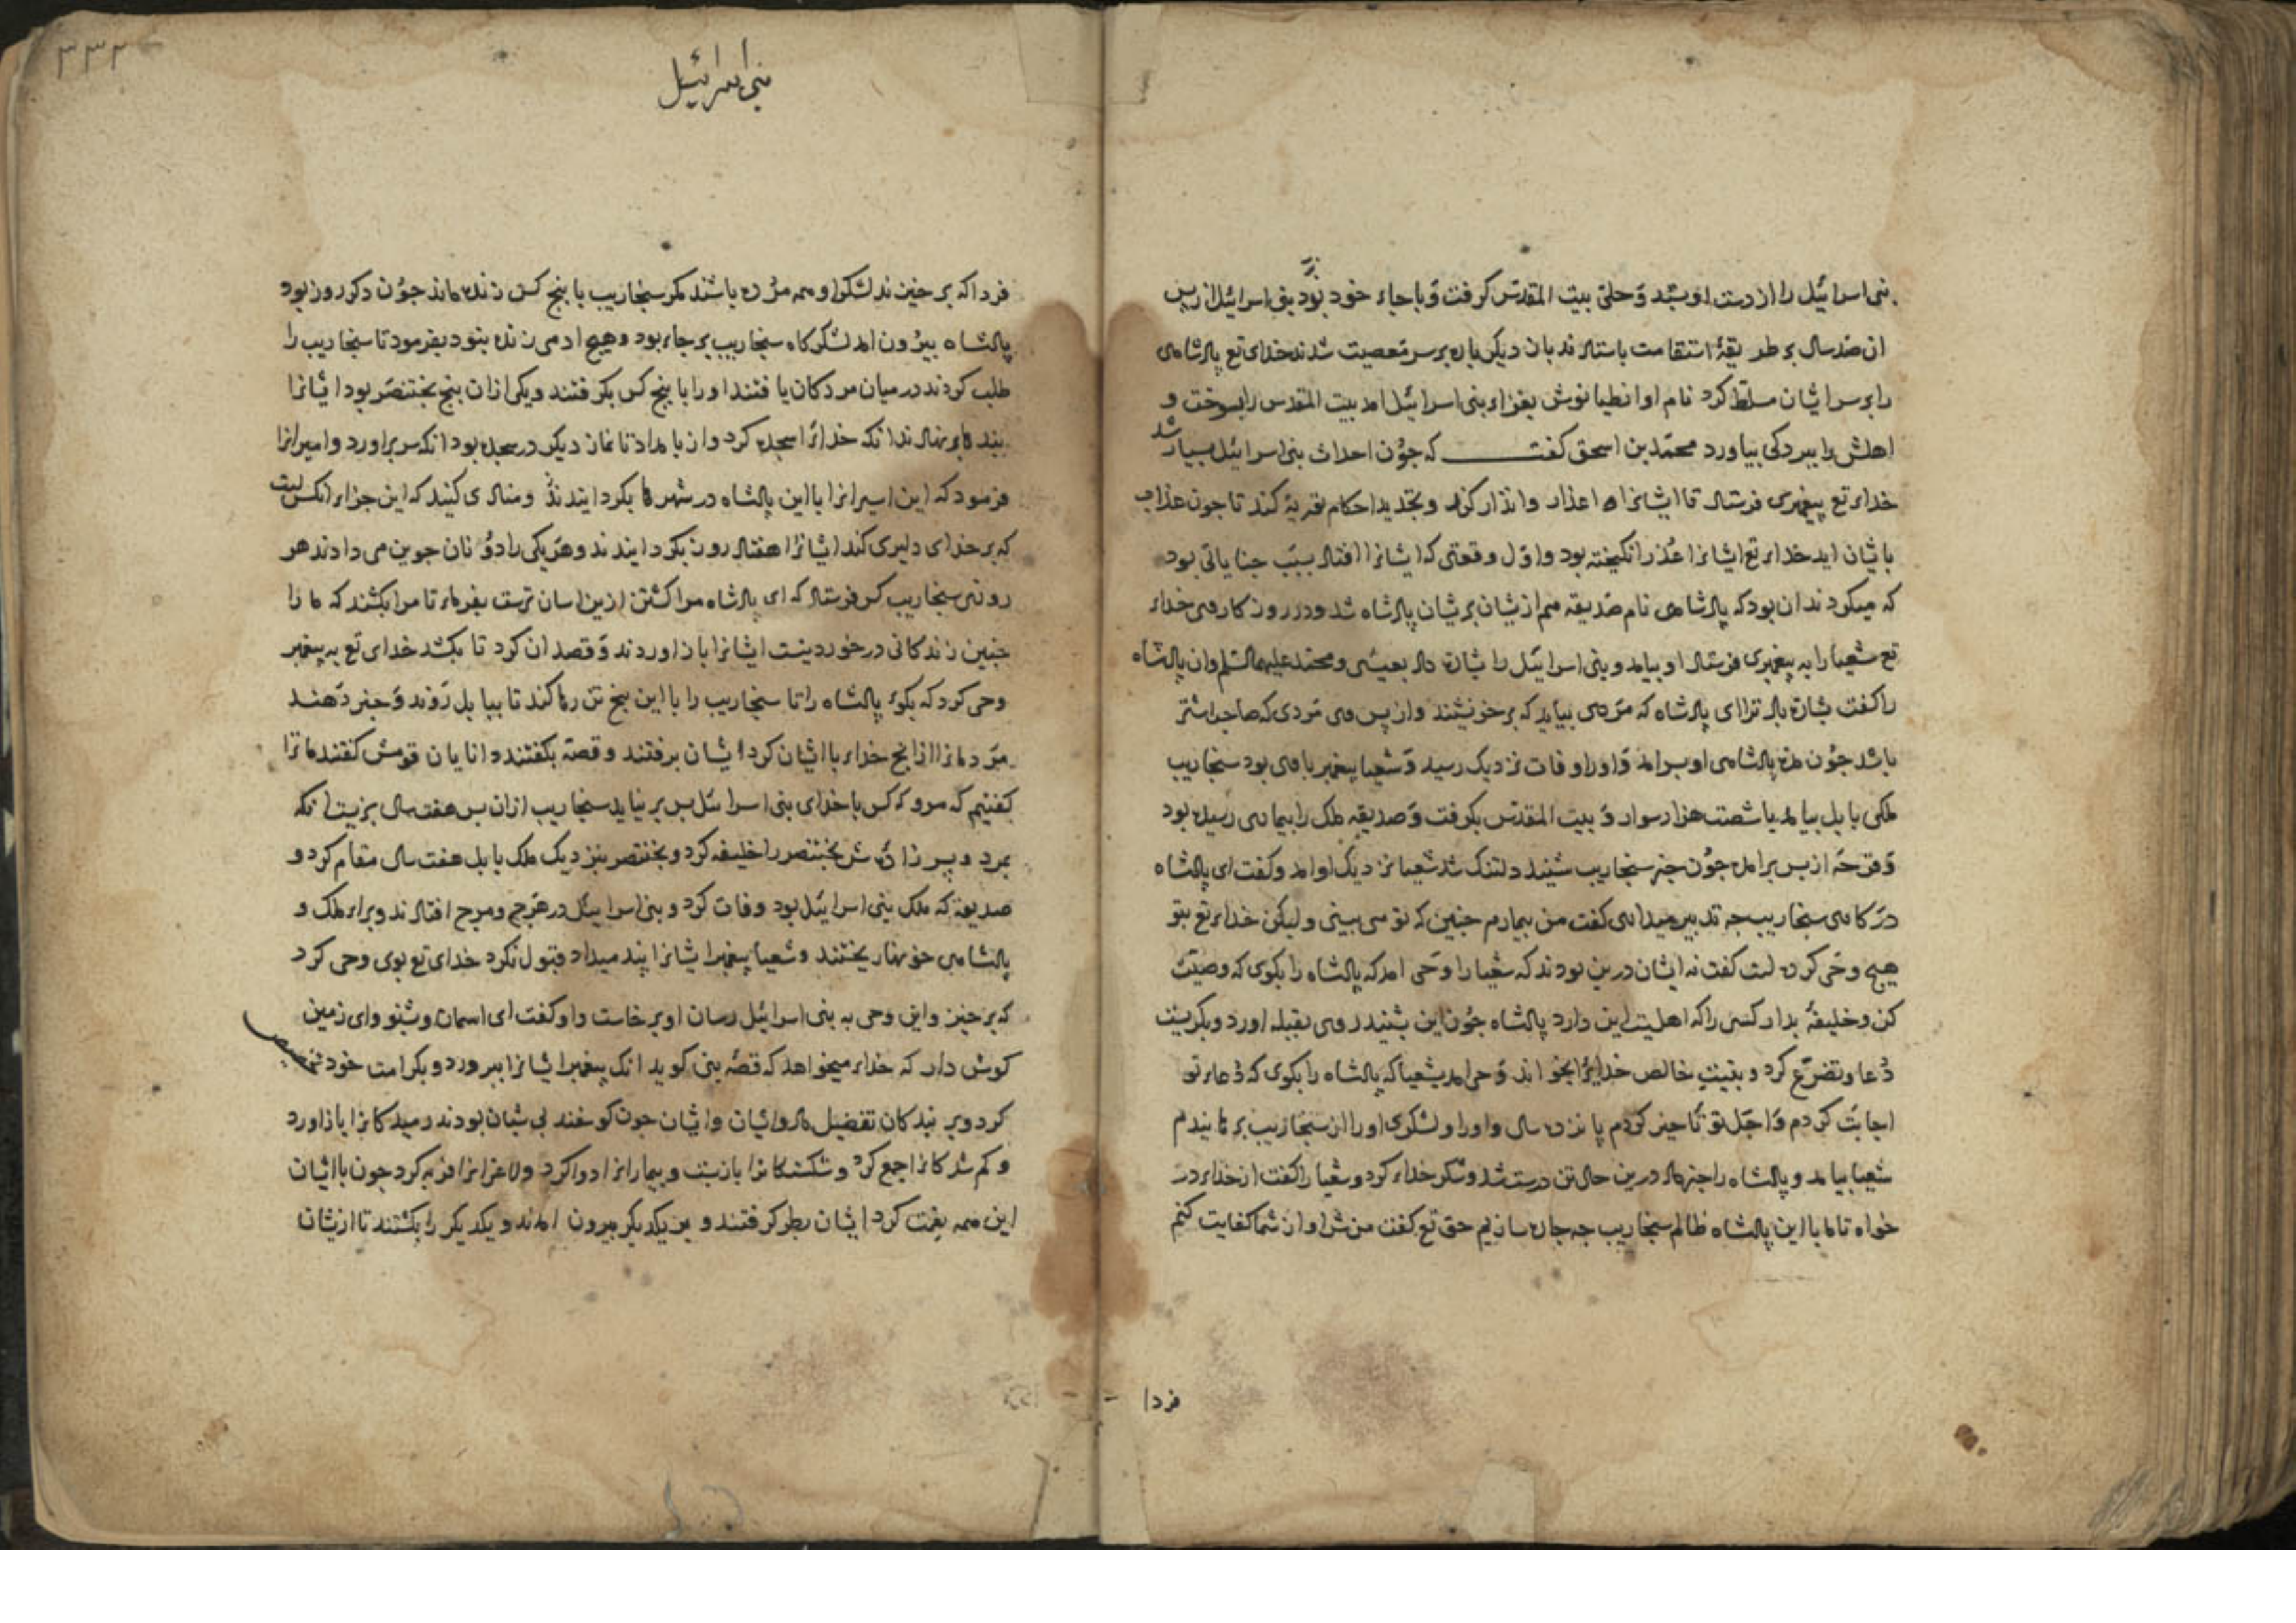 بنی اسرائیل را از دست او بستد و حلی بیت المقدس کرفت و با جاء خود برد بنی اسرائیل از پس
ان صد سال بر طریقهٔ استقامت باستادند بان دیکر باره بر سر معصیت شدند خدای تع پادشاهی
را بر سر ایشان مسلط کرد نام او انطیانوش بغزاء بنی اسرائیل امد بیت المقدس را بسوخت و
اهلش را ببردکی بیاورد محمد بن اسحق کفت که جون احداث بنی اسرائیل بسیار شد
خداء تع پیغمبری فرستاد تا ایشانرا اعذار و انذار کند و بتجدید احکام تورية کند تا جون عذاب
بایشان اید خداء تع ایشانرا عذر انکیخته بود و اول وقعتی که ایشانرا افتاد بسبب جنایاتی بود
که میکردند ان بود که پادشاهی نام صدیقه هم ازیشان بریشان پادشاه شد و در روزکار وی خداء
تع شعیا را به پیغمبری فرستاد او بیامد و بنی اسرائیل را بشارة داد بعیسی و محمد علیهما السلم و ان پادشاه
را کفت بشارة باد ترا ای پادشاه که مردی بیاید که بر خر نشیند و از پس وی مردی که صاحب اشتر
باشد جون مدة پادشاهی او بسر امد و او را وفات نزدیک رسید و شعیا پیغمبر با وی بود سنجاریب
ملکی بابل بیامد با شصت هزار سوار و بیت المقدس بکرفت و صدیقه ملک را بیماری رسیده بود
و قرحه از بس برامده جون خبر سنجاریب شنید دلتنک شد شعیا نزدیک او امد و کفت ای پادشاه
در کار سنجاریب جه تدبیر میداری کفت من بیمارم جنین که تو می بینی و لیکن خداء تع بتو
هیج وحی کرده است کفت نه ایشان درین بودند که شعیا را وحی امد که پادشاه را بکوی که وصیت
کن و خلیفهٔ بدار کسی را که اهلیت این دارد پادشاه جون این بشنید روی بقبله اورد و بکریست
دعا و تضرع کرد و بنیت خالص خدایرا بخواند وحی امد بشعیا که پادشاه را بکوی که دعاء تو
اجابت کردم و اجل تو تاخیر کردم پانزده سال و او را و لشکری او را از سنجاریب برهانیدم
شعیا بیامد و پادشاه را خبر داد درین حال تن درست شد و شکر خداء کرد و شعیا را کفت از خداء در
خواه تا ما با این پادشاه ظالم سنجاریب جه جاره سازیم حق تع کفت من شر او از شما کفایت کنم
فردا
بنی اسرائیل
۳۳۲
فردا که برخیزند لشکر او همه مرده باشند مکر سنجاریب با پنج کس زنده ماند جون دکر روز بود
پادشاه بیرون امد لشکرکاه سنجاریب بر جاء بود و هیج ادمی زنده نبود بفرمود تا سنجاریب را
طلب کردند در میان مردکان یافتند او را با پنج کس بکرفتند و یکی ازان پنج بختنصر بود ایشانرا
بند برنهادند انکه خدایرا سجده کرد و از بامداد تا نماز دیکر در سجده بود انکه سر براورد و امیرانرا
فرمود که این اسیرانرا با این پادشاه در شهرها بکردانیدند و منادی کنید که این جزاء انکس است
که بر خدای دلیری کند ایشانرا هفتاد روز بکردانیدند و هر یکی را دو نان جوین می دادند هر
روزی سنجاریب کس فرستاد که ای پادشاه مرا کشتن ازین اسان ترست بفرماء تا مرا بکشند که ما را
جنین زندکانی درخور نیست ایشانرا باز اوردند و قصد ان کرد تا بکشد خدای تع به پیغمبر
وحی کرد که بکوء پادشاه را تا سنجاریب را با این پنج تن رها کند تا ببابل روند و خبر دهند
مردمانرا از انج خداء با ایشان کرد ایشان برفتند و قصه بکفتند دانایان قومش کفتند ما ترا
کفتیم که مرو که کس با خدای بنی اسرائیل بس بر نیاید سنجاریب ازان بس هفت سال بزیست انکه
بمرد و پسر زادهٔ ش بختنصر را خلیفه کرد و بختنصر بنزدیک ملک بابل هفت سال مقام کرد و
صدیقه که ملک بنی اسرائیل بود وفات کرد و بنی اسرائیل در هرج و مرج افتادند و براء ملک و
پادشاهی خونها ریختند و شعیا پیغمبر ایشانرا پند میداد قبول نکرد خدای تع بوی وحی کرد
که برخیز و این وحی به بنی اسرائیل رسان او برخاست و او کفت ای اسمان وشنو و ای زمین
کوش دار که خداء میخواهد که قصهٔ بنی کوید انک پیغمبر ایشانرا ببرورد و بکرامت خود تخصیص
کرد و بر بندکان تفضیل داد و ایشان جون کوسفند بی شبان بودند رمیدکانرا باز اورد
و کم شدکانرا جمع کرد و شکستکانرا باز بست و بیمارانرا دوا کرد و لاغرانرا فربه کرد جون با ایشان
این همه نعمت کرد ایشان بطر کرفتند و بر یکدیکر بیرون امدند و یکدیکر را بکشتند تا ازیشان